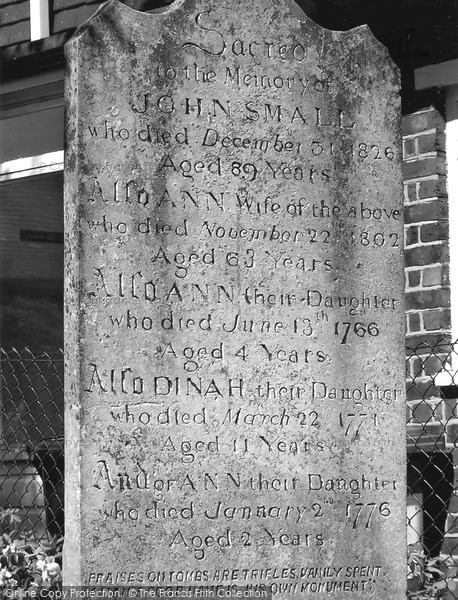 Sacred
to the Memory of
JOHN SMALL
who died December 31 1826
Aged 89 Years
Also ANN Wife of the above
who died November 22 1802
Aged 63 Years
Also ANN their Daughter
who died June 13th 1766
Aged 4 Years
Also DINAH their Daughter
who died March 22 1771
Aged 11 Years
And of ANN their Daughter
who died January 2nd 1776
Aged 2 Years
PRAISES ON TOMBS ARE TRIFLES VAINLY SPENT
OWN MONUMENT
Online Copy Protection. Copyright © The Francis Frith Collection